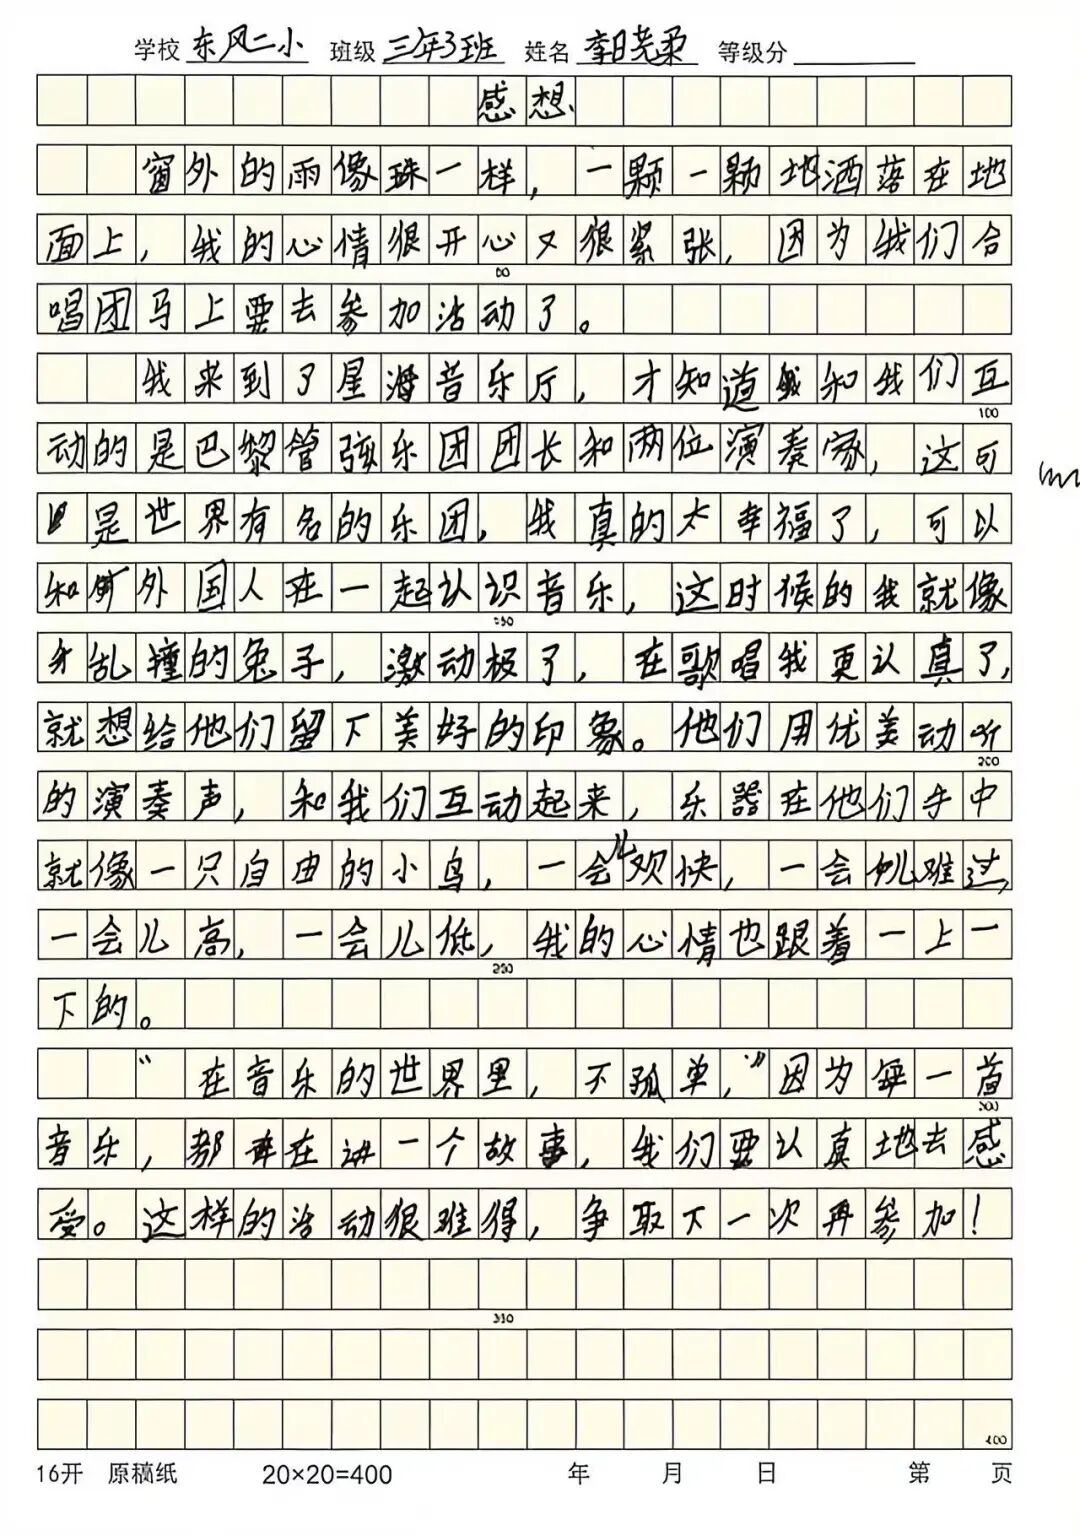 学校 东风二小 班级 三年3班 姓名 李晓柔 等级分
感想
窗外的雨像珠一样，一颗一颗地洒落在地
面上，我的心情很开心又很紧张，因为我们合
唱团马上要去参加活动了。
我来到了星海音乐厅，才知道和我们互
100
动的是巴黎管弦乐团团长和两位演奏家，这可
是世界有名的乐团，我真的太幸福了，可以
和外国人在一起认识音乐，这时候的我就像
乱撞的兔子，激动极了，在歌唱我更认真了，
就想给他们留下美好的印象。他们用优美动听
200
的演奏声，和我们互动起来，乐器在他们手中
就像一只自由的小鸟，一会儿欢快，一会难过，
一会儿高，一会儿低，我的心情也跟着一上一
下的。
“在音乐的世界里，不孤单，”因为每一首
300
音乐，都在讲一个故事，我们要认真地去感
受。这样的活动很难得，争取下一次再参加！
400
16开 原稿纸 20×20=400 年 月 日 第 页